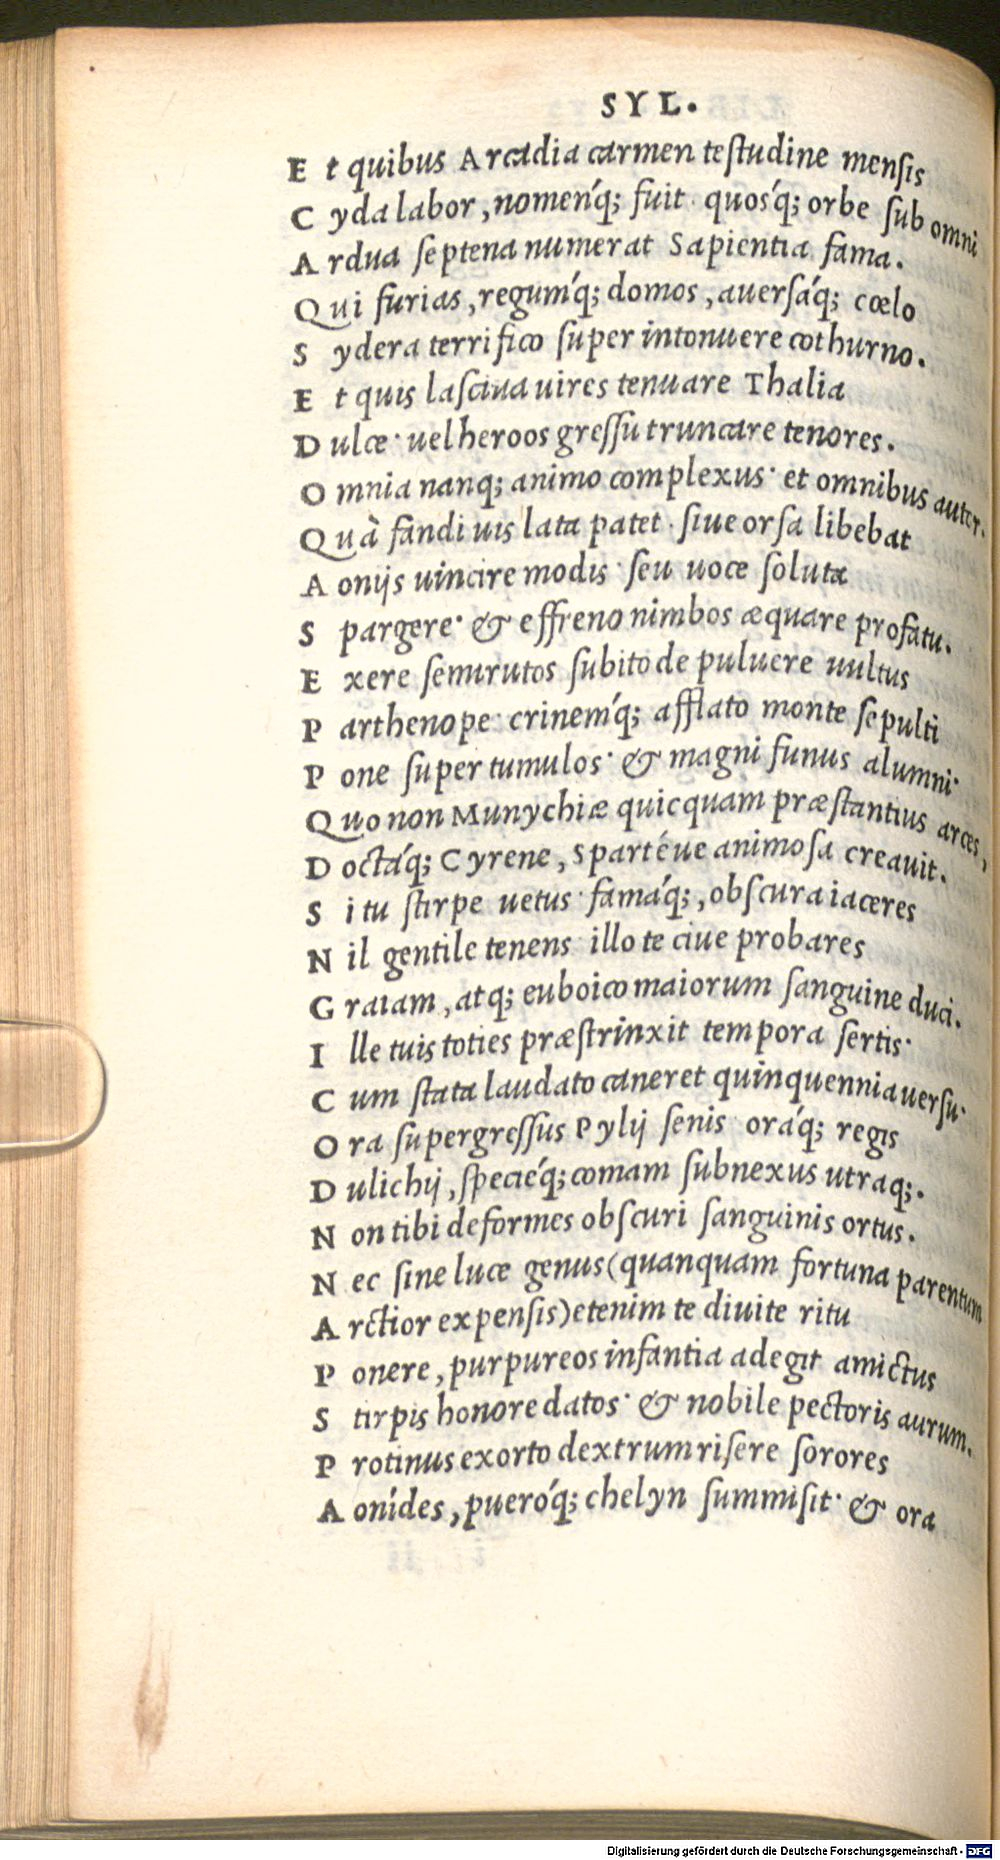 SYL.
E t quibus Arcadia carmen testudine mensis
C yda labor, nomenq́; fuit· quosq́; orbe sub omni
A rdua septena numerat Sapientia fama.
Q ui furias, regumq́; domos, auersáq; cœlo
S ydera terrifico super intonuere cothurno.
E t quis lasciua uires tenuare Thalia
D ulce· uel heroos gressu truncare tenores.
O mnia nanq; animo complexus· et omnibus autor.
Q uà fandi uis lata patet· siue orsa libebat
A onijs uincire modis· seu uoce soluta
S pargere· & effreno nimbos æquare profatu.
E xere semirutos subito de puluere uultus
P arthenope· crinemq́; afflato monte sepulti
P one super tumulos· & magni funus alumni·
Q uo non Munychiæ quicquam præstantius arces,
D octáq; Cyrene, Sparté ue animosa creauit.
S i tu stirpe uetus· famáq;, obscura iaceres
N il gentile tenens· illo te ciue probares
G raiam, atq; euboico maiorum sanguine duci.
I lle tuis toties præstrinxit tempora sertis·
C um stata laudato caneret quinquennia uersu·
O ra supergressus Pylij senis· oráq; regis
D ulichij, specieq́; comam subnexus utraq;.
N on tibi deformes obscuri sanguinis ortus.
N ec sine luce genus (quanquam fortuna parentum
A rctior expensis) etenim te diuite ritu
P onere, purpureos infantia adegit amictus
S tirpis honore datos· & nobile pectoris aurum.
P rotinus exorto dextrum risere sorores
A onides, pueróq; chelyn summisit· & ora
Digitalisierung gefördert durch die Deutsche Forschungsgemeinschaft - DFG